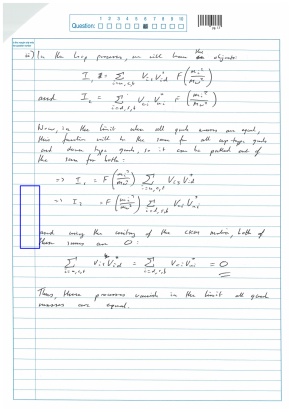 1 2 3 4 5 6 7 8 9 10
Question:
ii) In the loop processes, we will have the objects:
I_1 = Σ_{i=u,c,t} V_{is} V_{id}^* F(m_i^2/m_W^2)
and I_2 = Σ_{i=d,s,b} V_{ci} V_{ui}^* F(m_i^2/m_W^2)
Now, in the limit when all quark masses are equal,
this function will be the same for all up-type quarks
and down type quarks, so it can be pulled out of
the sum for both:
=> I_1 = F(m_i^2/m_W^2) Σ_{i=u,c,t} V_{is} V_{id}^*
=> I_2 = F(m_i^2/m_W^2) Σ_{i=d,s,b} V_{ci} V_{ui}^*
and using the unitarity of the CKM matrix, both of
these sums are 0:
Σ_{i=u,c,t} V_{is} V_{id}^* = Σ_{i=d,s,b} V_{ci} V_{ui}^* = 0
Thus, these processes vanish in the limit all quark
masses are equal.